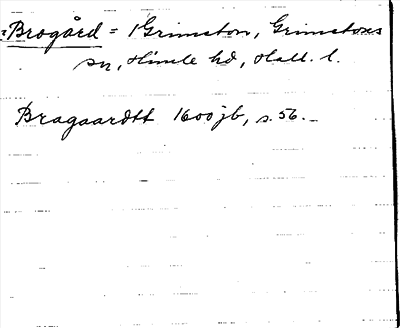 =Brogård = 1 Grimeton, Grimetons
sn, Himle hd, Hall. l.
Bragaardtt 1600 jb, s. 56. –